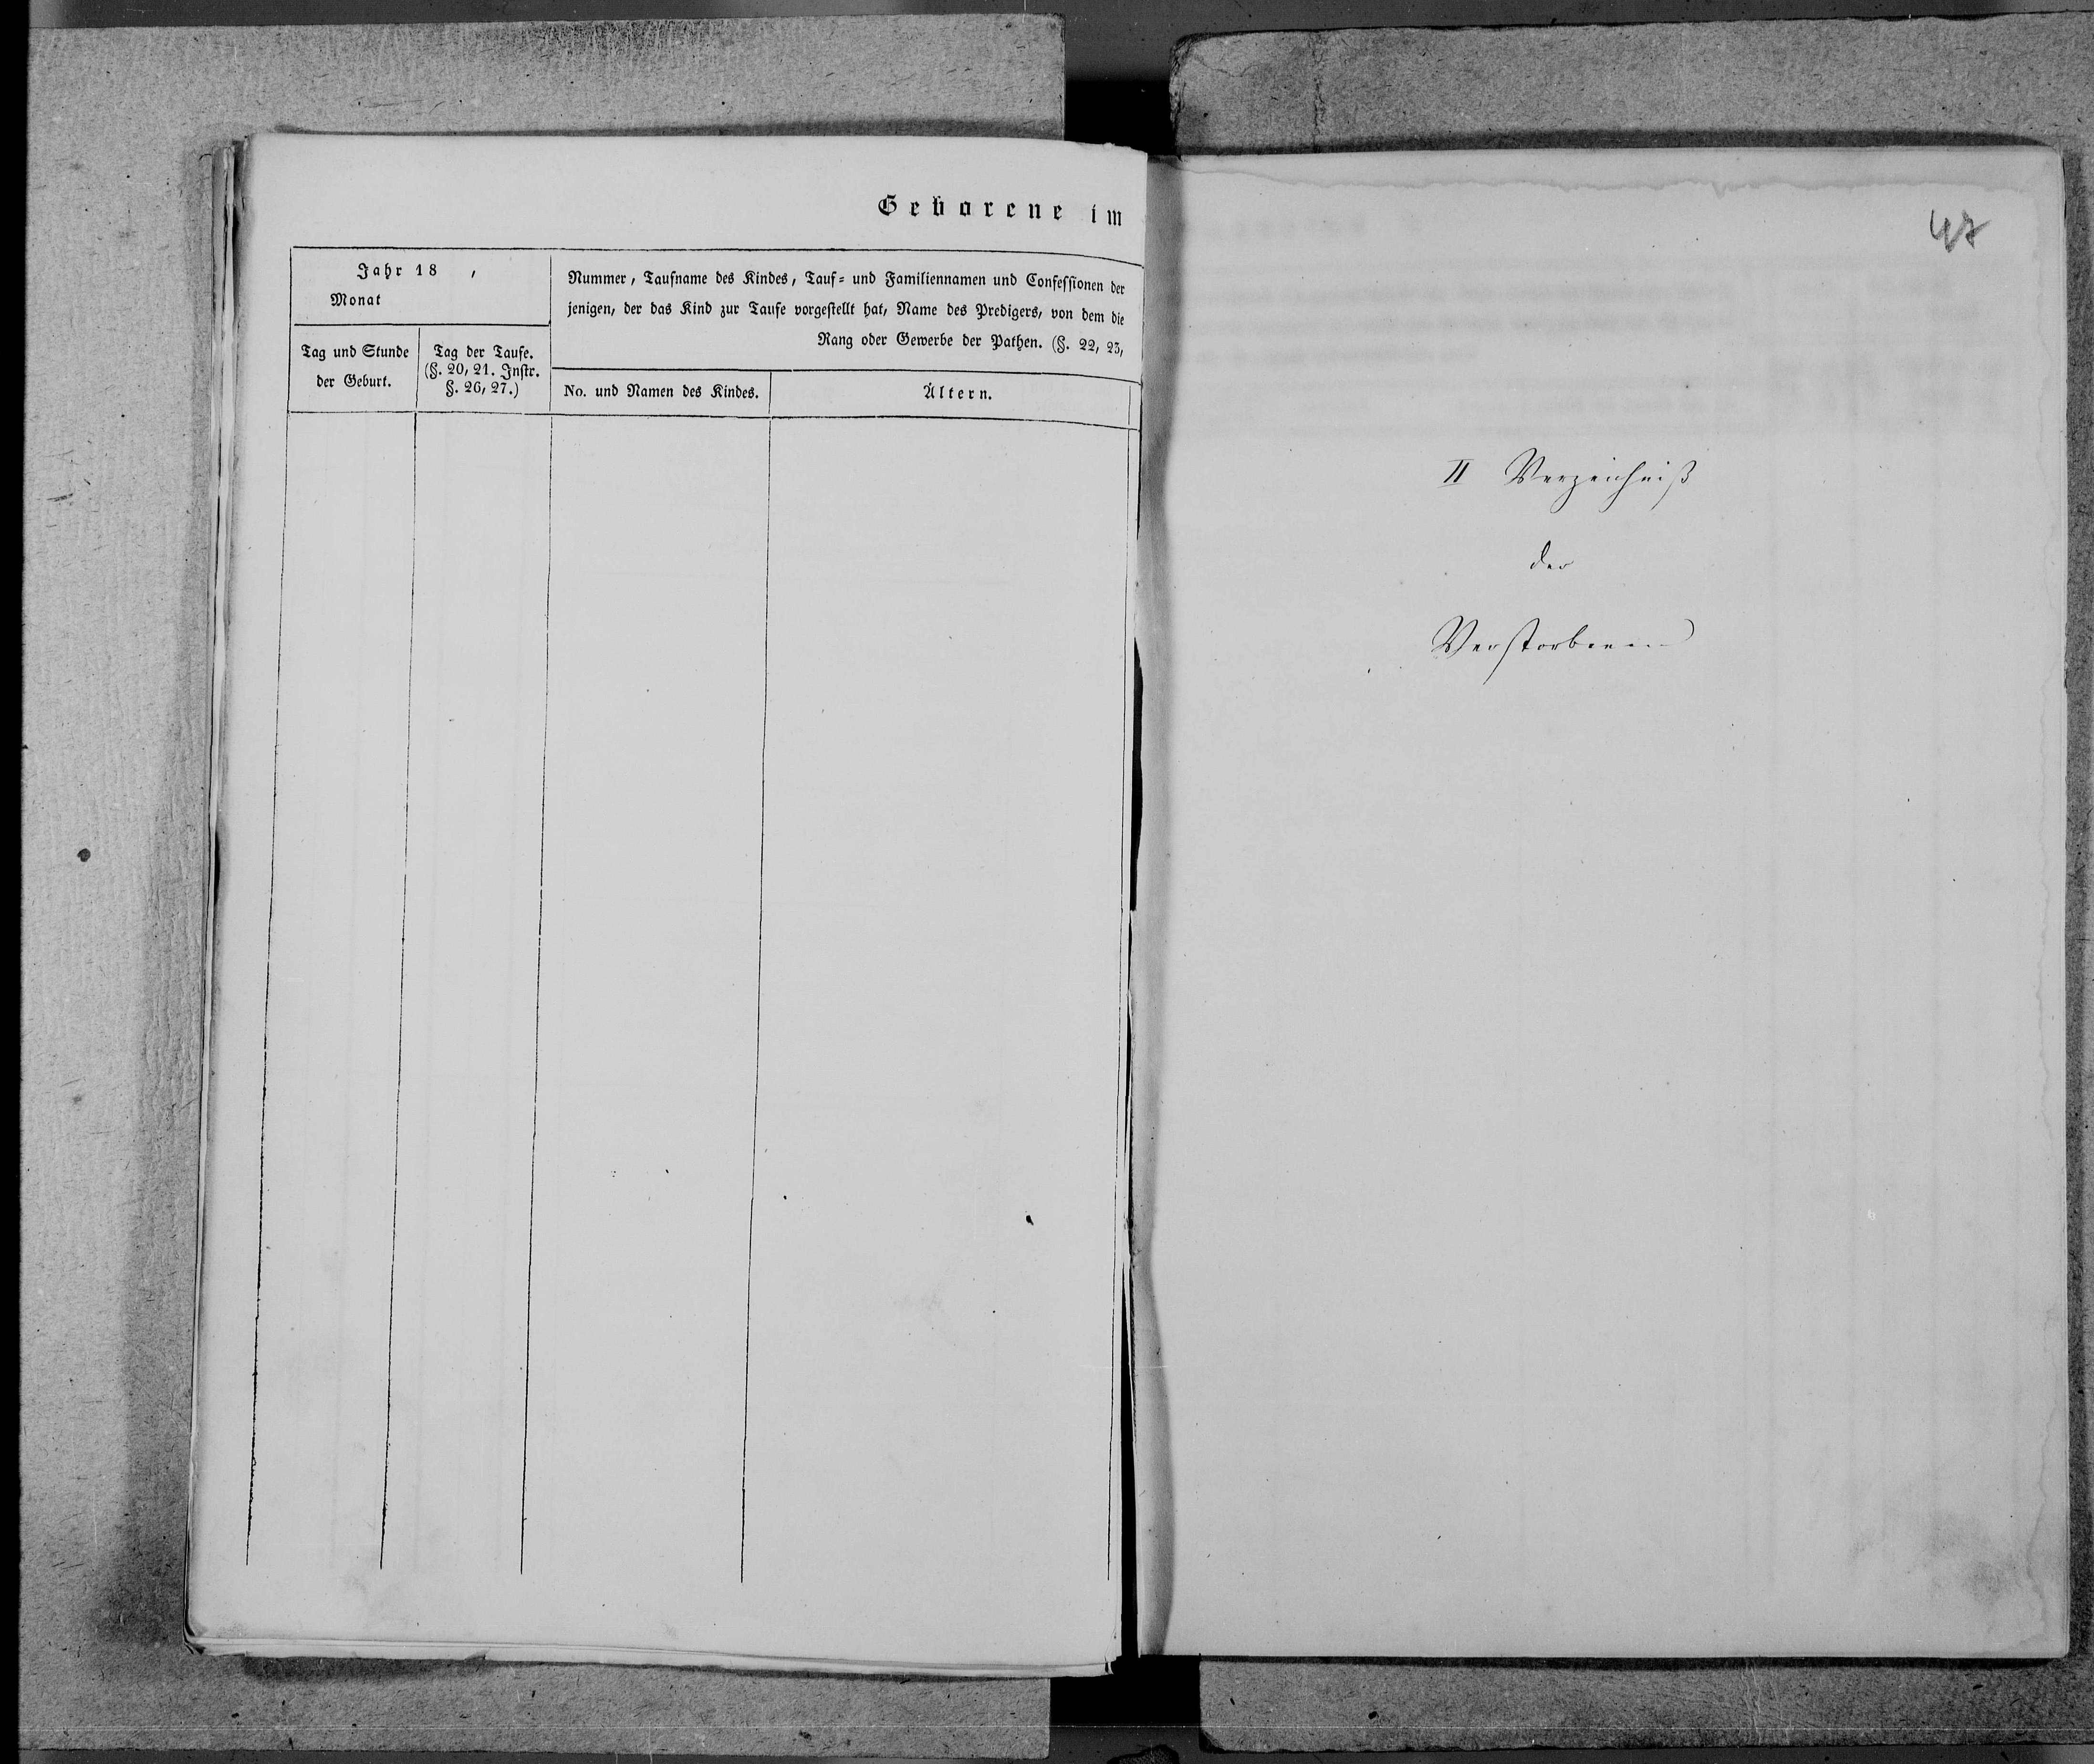 Geborene im
Jahr 18 ,
Monat
Tag und Stunde
der Geburt.
Tag der Taufe.
(§. 20, 21. Instr.
§. 26, 27.)
Nummer, Taufname des Kindes, Tauf- und Familiennamen und Confessionen der
jenigen, der das Kind zur Taufe vorgestellt hat, Name des Predigers, von dem die
Rang oder Gewerbe der Pathen. (§. 22, 23,
No. und Namen des Kindes.
Ältern.
47
II Verzeichniß
der
Verstorbenen